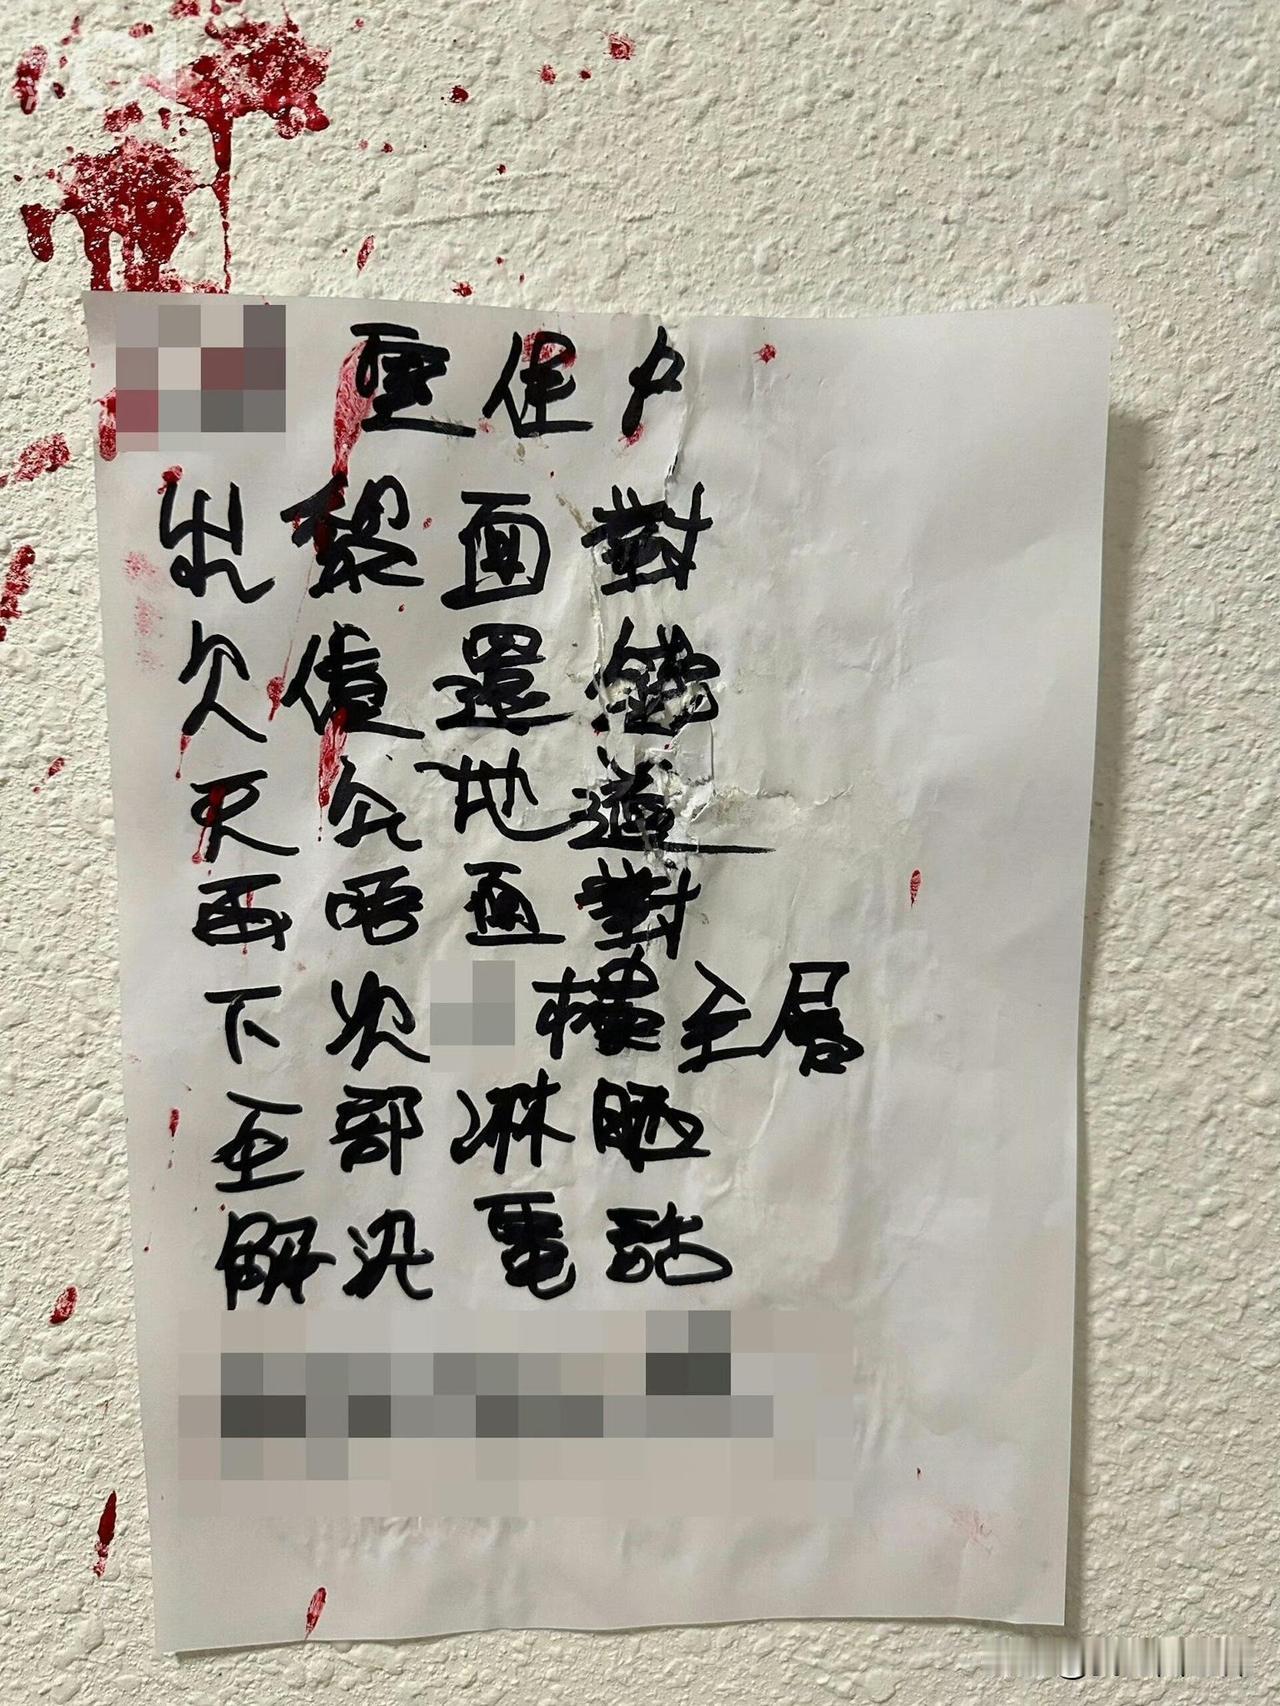 室住户
出嚟面對
欠債還錢
天公地道
再唔面對
下次 樓全層
全部淋晒
解決電話